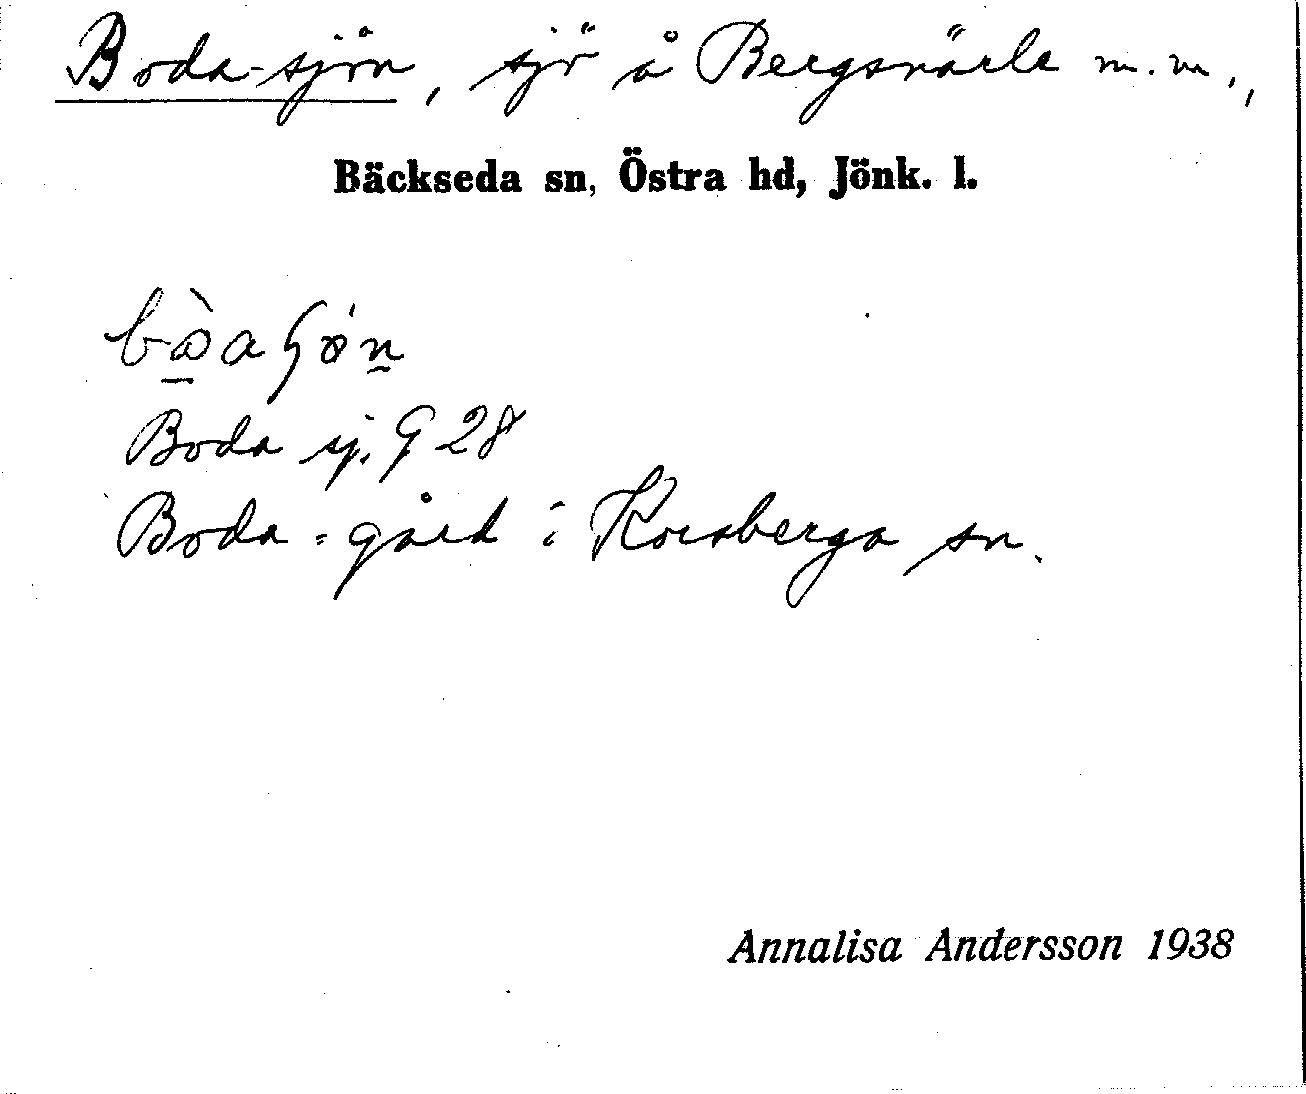 Boda-sjön, sjö å Bergsnärle m.m.,
Bäckseda sn, Östra hd, Jönk. l.
Boda sj. G 28
Boda = gård i Korsberga sn.
Annalisa Andersson 1938